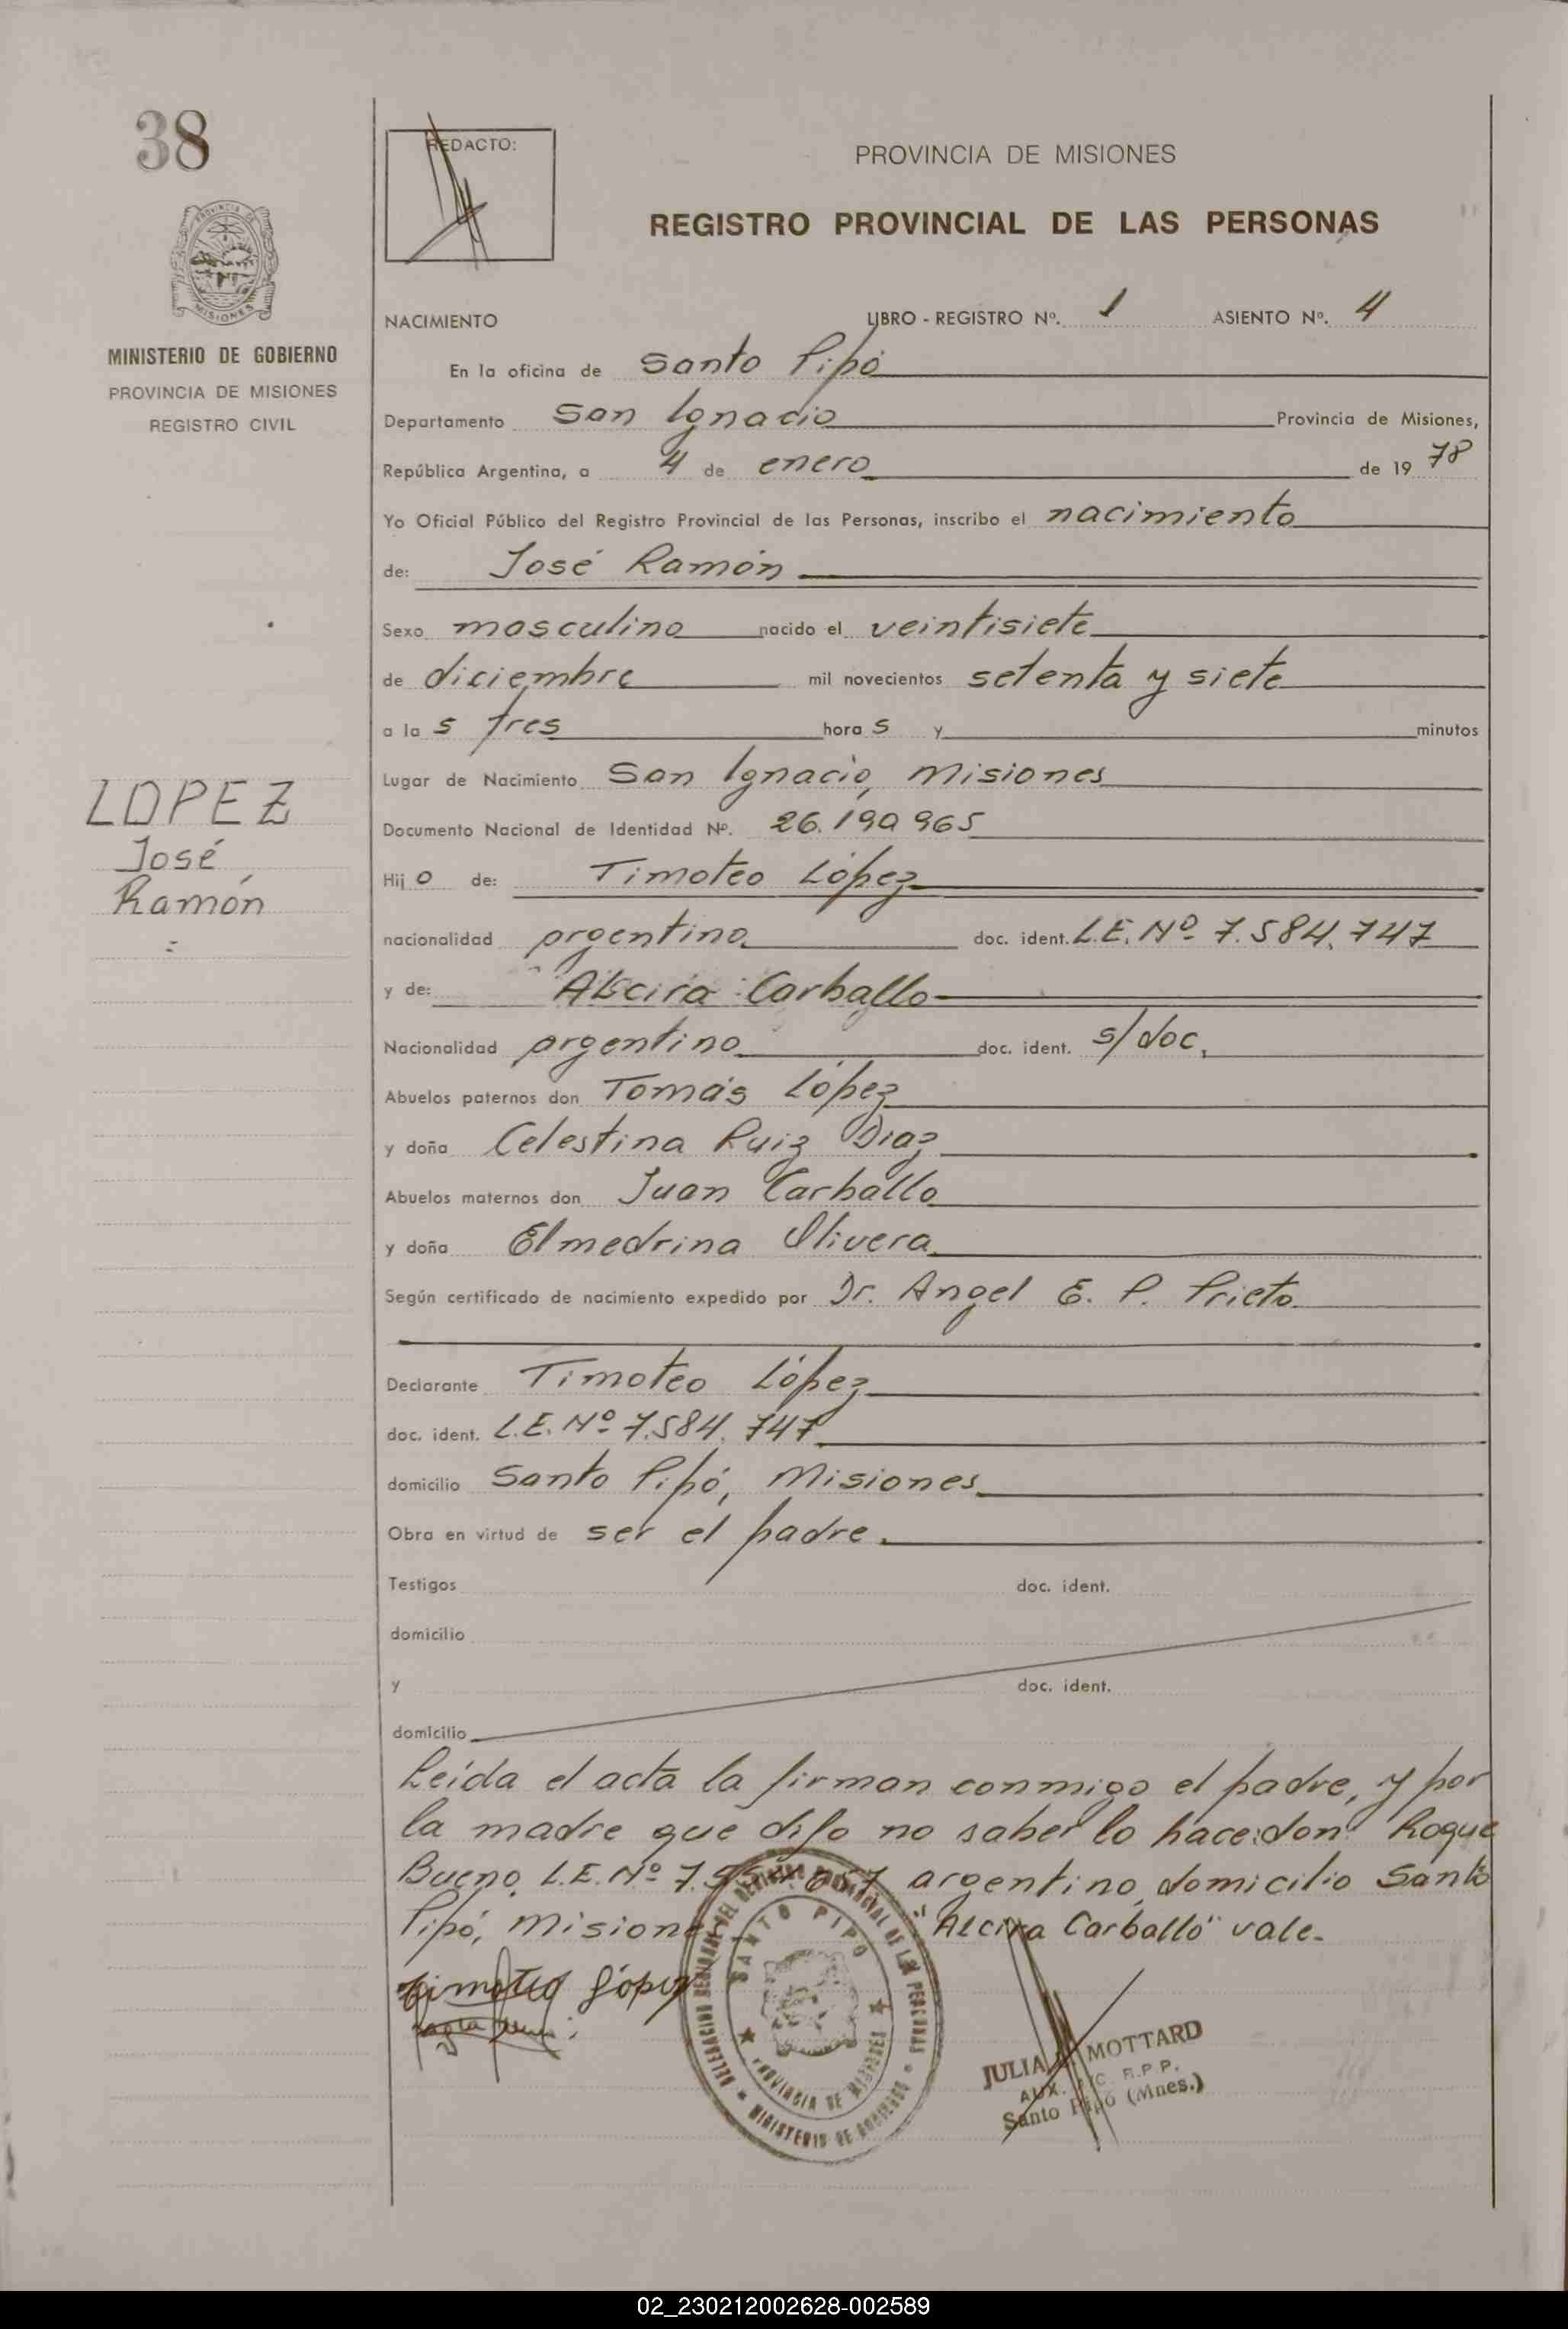 38
PROVINCIA DE MISIONES
MINISTERIO DE GOBIERNO
PROVINCIA DE MISIONES
REGISTRO CIVIL
LOPEZ
José
Ramón
REDACTO:
PROVINCIA DE MISIONES
REGISTRO PROVINCIAL DE LAS PERSONAS
NACIMIENTO LIBRO - REGISTRO Nº. 1 ASIENTO Nº. 4
En la oficina de Santo Pipó
Departamento San Ignacio Provincia de Misiones,
República Argentina, a 4 de enero de 19 78
Yo Oficial Público del Registro Provincial de las Personas, inscribo el nacimiento
de: José Ramón
Sexo masculino nacido el veintisiete
de diciembre mil novecientos setenta y siete
a la s tres hora s y minutos
Lugar de Nacimiento San Ignacio, Misiones
Documento Nacional de Identidad Nº. 26.190965
Hij o de: Timoteo López
nacionalidad argentina doc. ident. L.E. Nº 7.584.747
y de: Alcira Carballo
Nacionalidad argentina doc. ident. s/doc.
Abuelos paternos don Tomás López
y doña Celestina Ruiz Diaz
Abuelos maternos don Juan Carballo
y doña Elmedrina Olivera
Según certificado de nacimiento expedido por Dr. Angel E. P. Prieto
Declarante Timoteo López
doc. ident. L.E. Nº 7.584.747
domicilio Santo Pipó, Misiones
Obra en virtud de ser el padre.
Testigos doc. ident.
domicilio
y doc. ident.
domicilio
Leída el acta la firman conmigo el padre, y por
la madre que dijo no saber lo hace don Roque
Bueno L.E. Nº argentino domicilio Santo
Pipó, Misiones "Alcira Carballo" vale.
Timoteo López
DELEGACION SECCIONAL DEL REGISTRO PROVINCIAL DE LAS PERSONAS
SANTO PIPO
PROVINCIA DE MISIONES
MINISTERIO DE GOBIERNO
JULIA MOTTARD
AUX. R.P.P.
Santo Pipó (Mnes.)
02_230212002628-002589